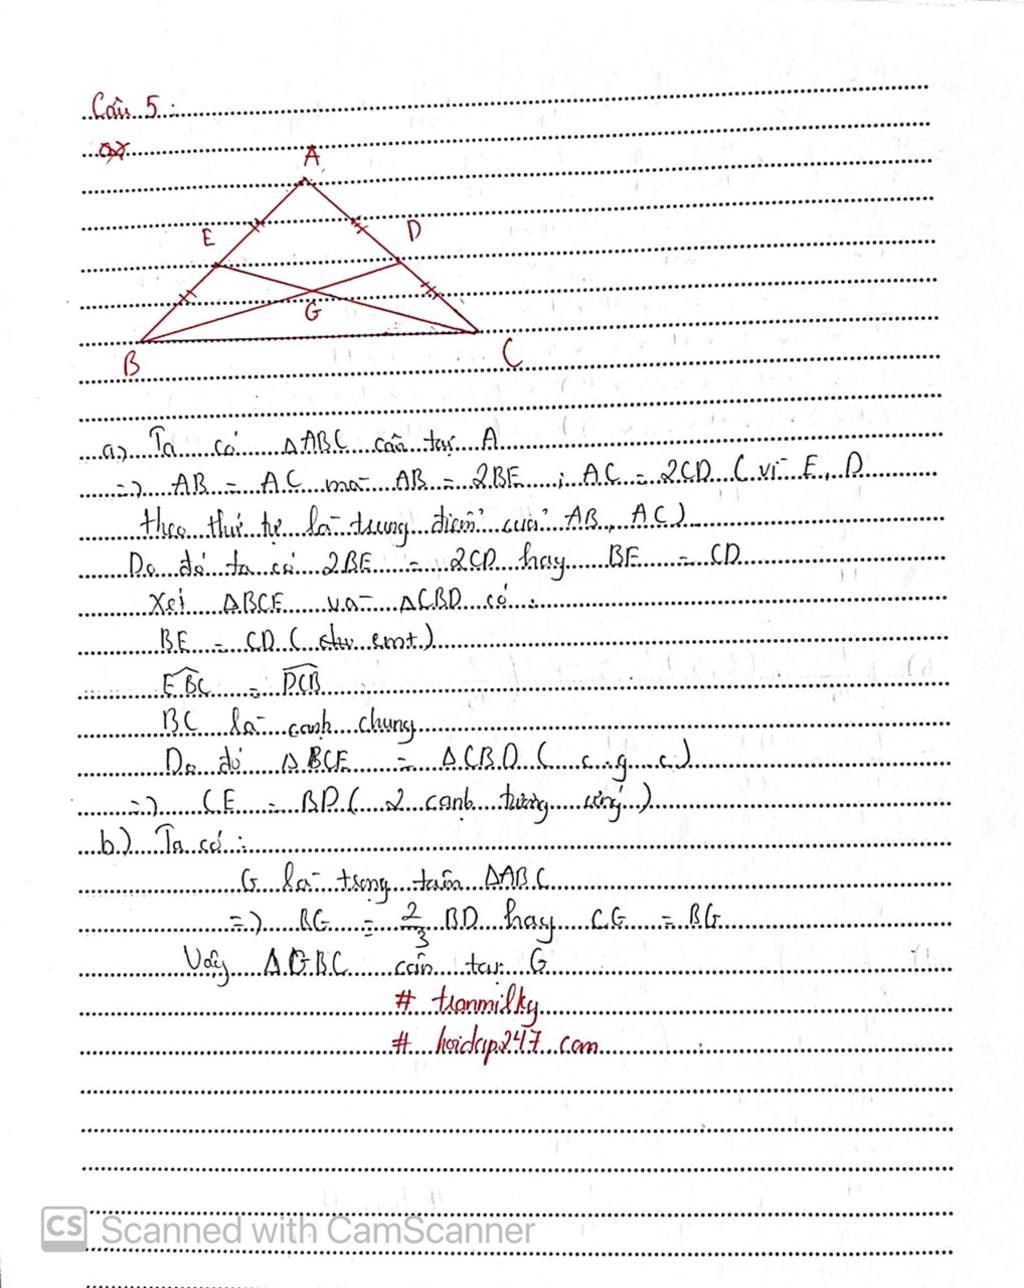 Câu 5:
A
E
D
G
B
C
a) Ta có ΔABC cân tại A
=> AB = AC mà AB = 2BE ; AC = 2CD ( vì E, D
theo thứ tự là trung điểm của AB, AC)
Do đó ta có 2BE = 2CD hay BE = CD
Xét ΔBCE và ΔCBD có :
BE = CD ( cmt )
EBC = DCB
BC là cạnh chung
Do đó ΔBCE = ΔCBD ( c.g.c )
=> CE = BD ( 2 cạnh tương ứng )
b) Ta có :
G là trọng tâm ΔABC
=> BG = 2/3 BD hay CG = BG
Vậy ΔGBC cân tại G
# tranmilky
# hoidap247.com
CS Scanned with CamScanner